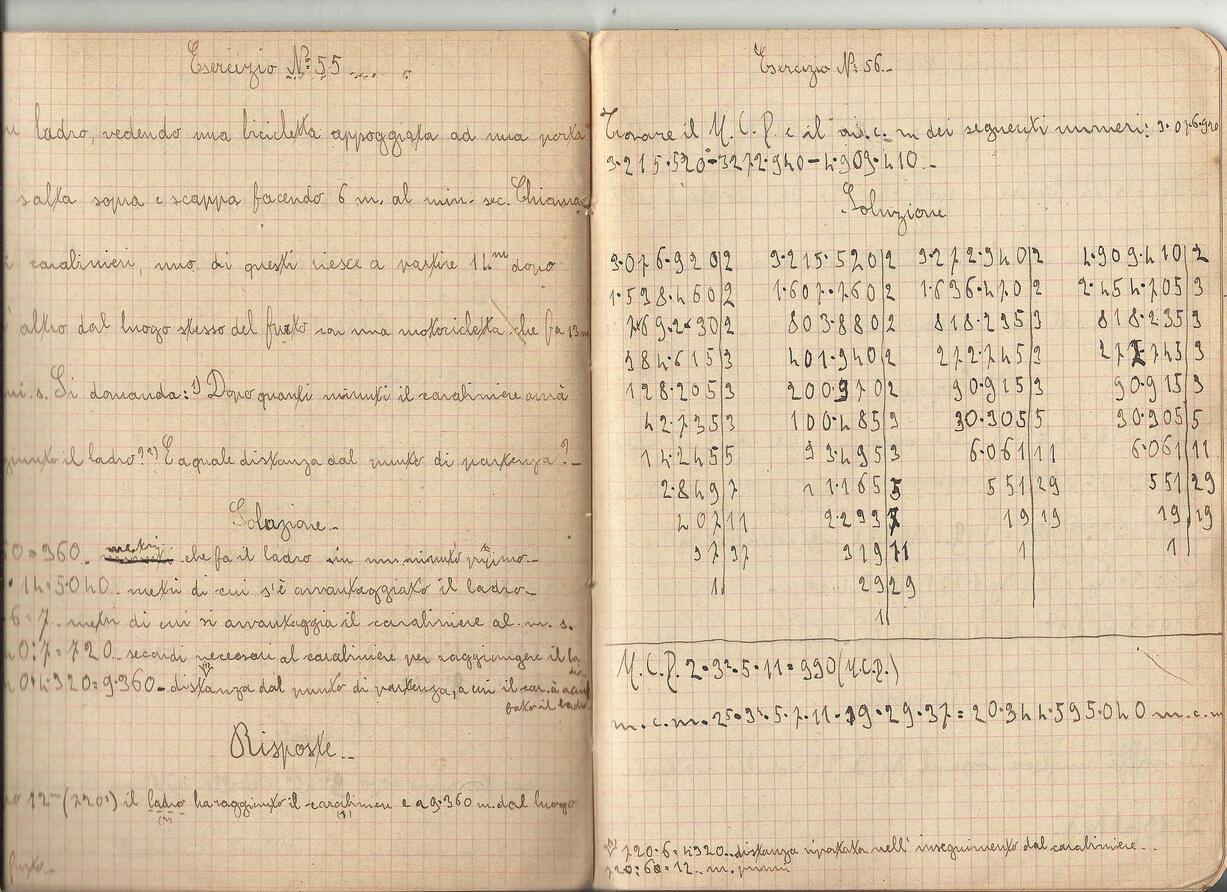 Esercizio Nº 55
ladro, vedendo una bicicletta appoggiata ad una porta
salta sopra e scappa facendo 6 m. al min. sec. Chiama
carabinieri, uno di questi riesce a partire 14 m dopo
altro dal luogo stesso del furto con una motocicletta che fa 13 m
m. s. Si domanda: 1) Dopo quanti minuti il carabiniere avrà
il ladro? 2) E a quale distanza dal punto di partenza?
Soluzione
0=360. metri che fa il ladro in un minuto primo
14=5.040 metri di cui s'è avvantaggiato il ladro
6=7. metri di cui si avvantaggia il carabiniere al m. s.
0:7=720. secondi necessari al carabiniere per raggiungere il la
dro
0+4.320=9.360 distanza dal punto di partenza, a cui il car. à
il ladro
Risposte
12 (720') il ladro ha raggiunto il carabiniere e a 9.360 m. dal luogo
furto.
Esercizio Nº 56
Trovare il M. C. D. e il m. c. m dei seguenti numeri: 3.076.920
3.215.520-3272.940-4.909.410
Soluzione
3.076.920|2 3.215.520|2 3.272.940|2 4.909.410|2
1.538.460|2 1.607.760|2 1.636.470|2 2.454.705|3
769.230|2 803.880|2 818.235|3 818.235|3
384.615|3 401.940|2 272.745|3 272.745|3
128.205|3 200.970|2 90.915|3 90.915|3
42.735|3 100.485|3 30.305|5 30.305|5
14.245|5 33.495|3 6.061|11 6.061|11
2.849|7 11.165|5 551|29 551|29
407|11 2.233|7 19|19 19|19
37|37 319|11 1| 1|
1| 29|29
1|
M.C.D. 2.3².5.11=990 (M.C.D.)
m.c.m. 2⁵.3⁴.5.7.11.19.29.37=20.344.595.040 m.c.m
720.6=4320 distanza riportata nell'inseguimento dal carabiniere
720:60=12 m. primi